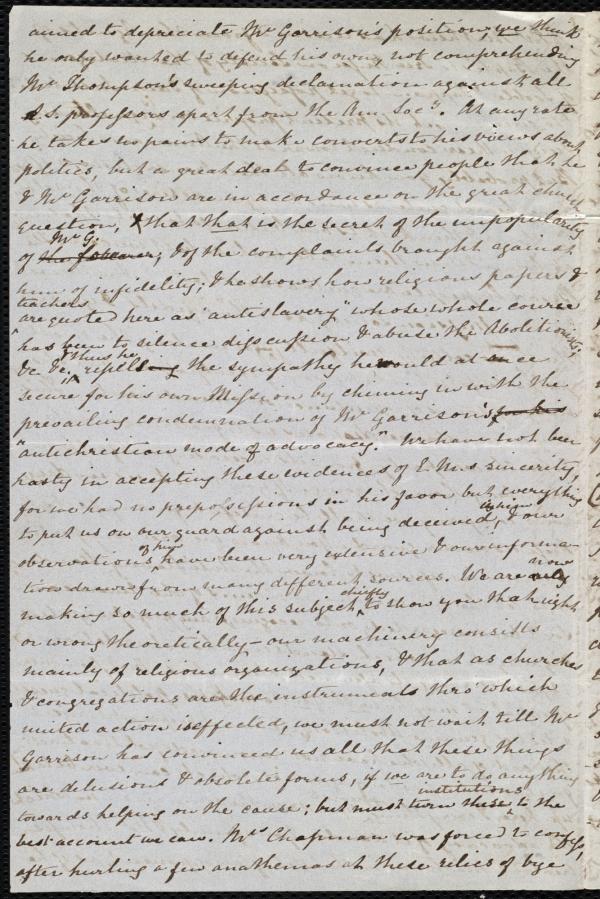 aimed to depreciate Mr Garrison's position, we think
he only wanted to defend his own, not comprehending
Mr Thompson's sweeping declamation against all
A.S. professors apart from the Am. Socy. At any rate
he takes no pains to make converts to his views about
politics, but a great deal to convince people that he
& Mr Garrison are in accordance on the great church
question, & that that is the secret of the unpopularity
Mr G.
of the forbearer, & of the complaints brought against
him of infidelity; & he shows how religious papers &
teachers
are quoted here as "antislavery" whose whole course
has been to silence discussion & abuse the Abolitionists,
Thus he
&c &c, repelling the sympathy he would at once
secure for his own Mission by chiming in with the
prevailing condemnation of Mr Garrison's for his
"antichristian mode of advocacy." We have not been
hasty in accepting these evidences of E. M's sincerity,
for we had no prepossessions in his favor but everything
to put us on our guard against being deceived, & our
of him
observations have been very extensive & our informa-
now
tion drawn from many different sources. We are only
chiefly
making so much of this subject, to show you that right
or wrong theoretically – our machinery consists
mainly of religious organizations, & that as churches
& congregations are the instruments thro' which
united action is effected, we must not wait till Mr
Garrison has convinced us all that these things
are delusions & obsolete forms, if we are to do anything
institutions
towards helping on the cause; but must turn these to the
best account we can. Mrs Chapman was forced to confess,
after hurling a few anathemas at these relics of bye